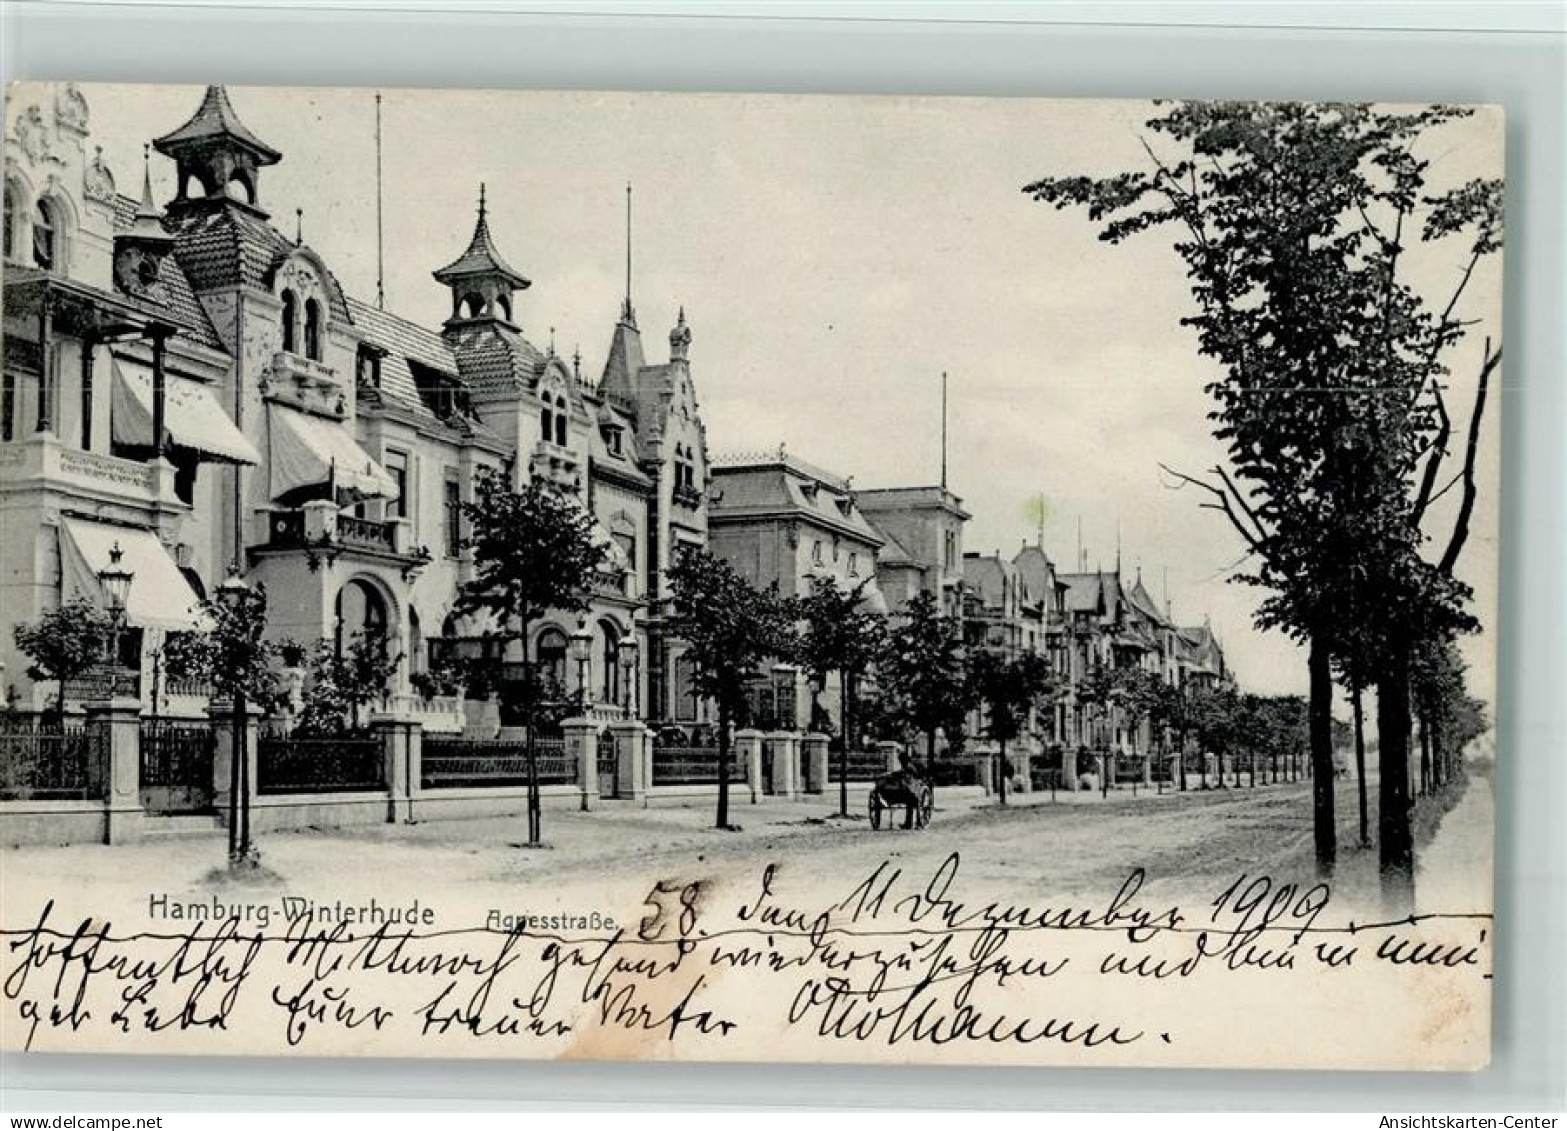 Hamburg-Winterhude Agnesstraße. 58. den 11 Dezember 1909.
Hoffentlich Mittwoch gesund wiederzusehen und bin in inni-
ger Liebe Euer treuer Vater Otto Mann.
Ansichtskarten-Center